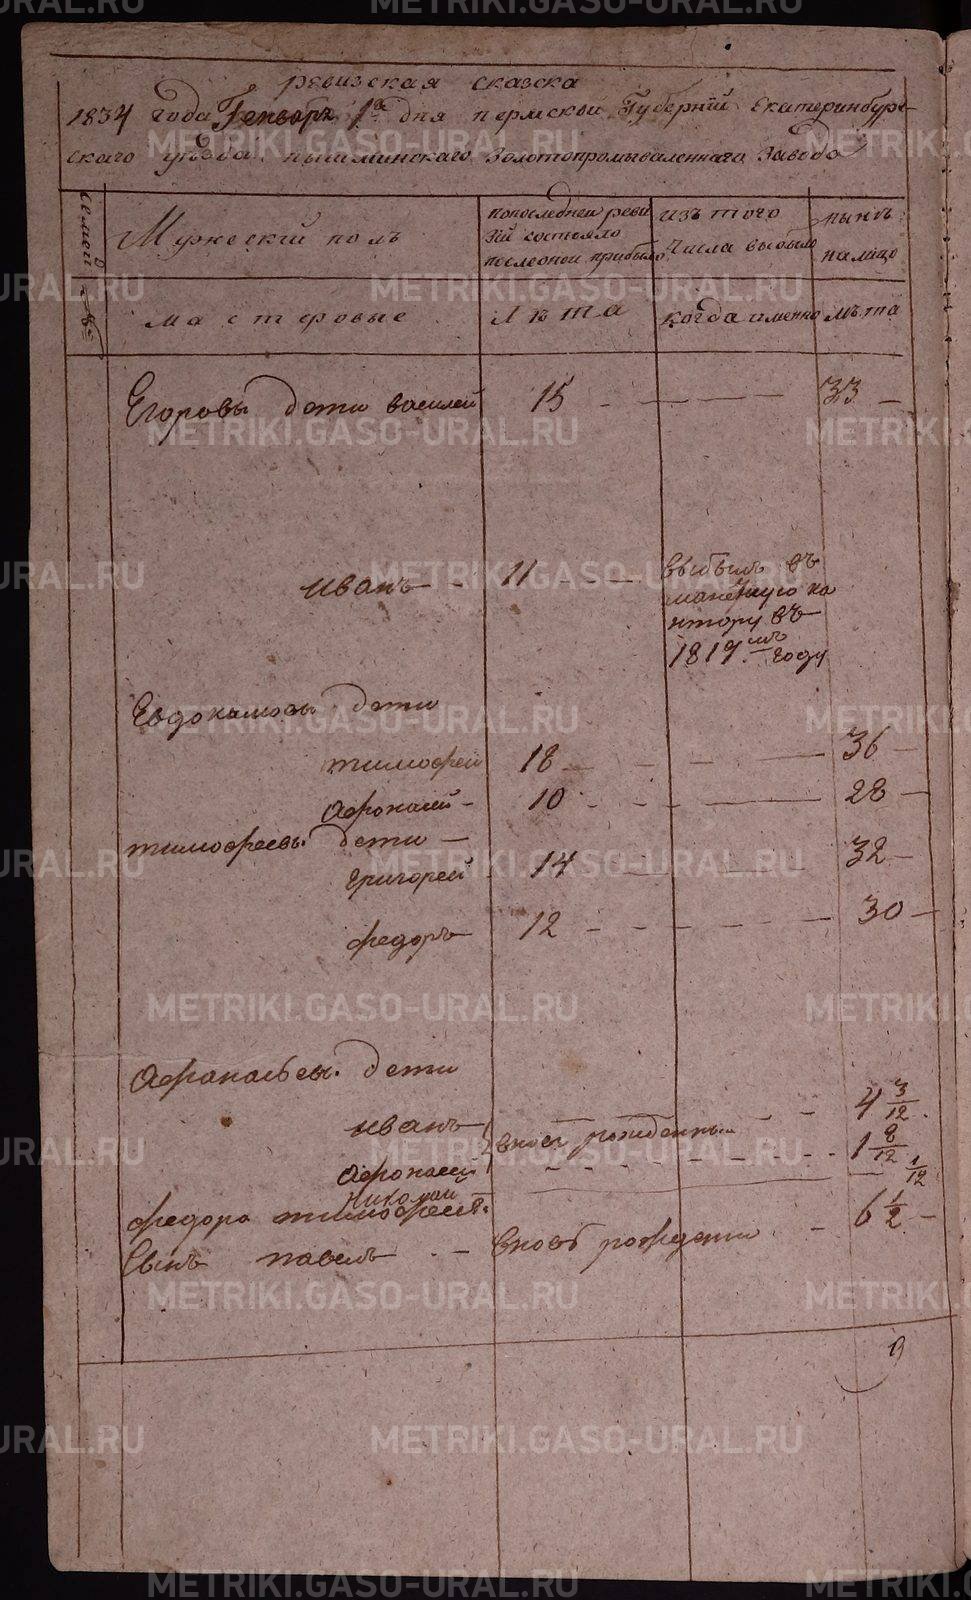 ревизская сказка
1834 года Генворя 1го дня пермской Губернiи Екатеринбург-
скаго уѣзда пышминскаго Золотопромываленнаго Завода
семей
№
Мужескiй полъ
попоследней реви
зiи состояло
послѣоной прибыло
изъ того
числа выбыло
нынѣ
налицо
мастеровые
Лѣта
когда именно
лѣта
Егоровы дети василей 15 33
иванъ 11 выбылъ въ
ко
нтору въ
1819мъ году
Евдокимовы дети
тимофей 18 36
Афонасей 10 28
тимофеевы дети
григорей 14 32
федоръ 12 30
Афанасьевы дети
иванъ 4 3/12
вновь рожденны
Афонасей 1 8/12
Николай 1/12
федора тимофеева
сынъ павелъ вновь рожденны 6 1/2
9
METRIKI.GASO-URAL.RU